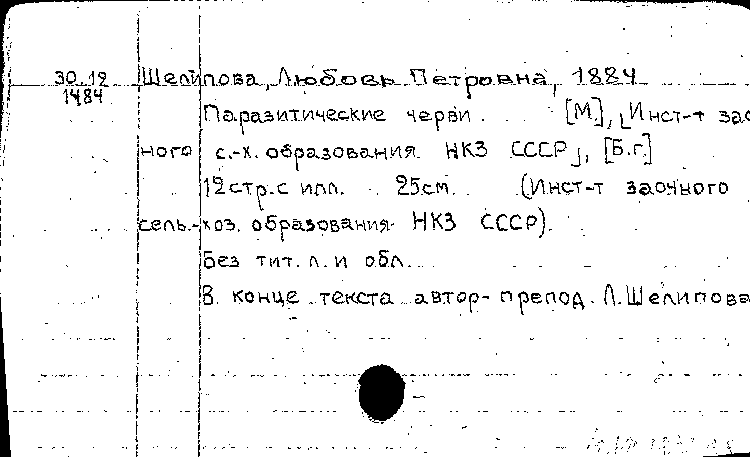 30.12 Шелипова, Любовь Петровна, 1884
1484
Паразитические черви. [М], [Инст-т заоч
ного с.-х. образования НКЗ СССР], [Б.г.]
12 стр. с илл. 25см. (Инст-т заочного
сель.-хоз. образования НКЗ СССР).
Без тит. л. и обл.
В конце текста автор- препод. Л. Шелипова